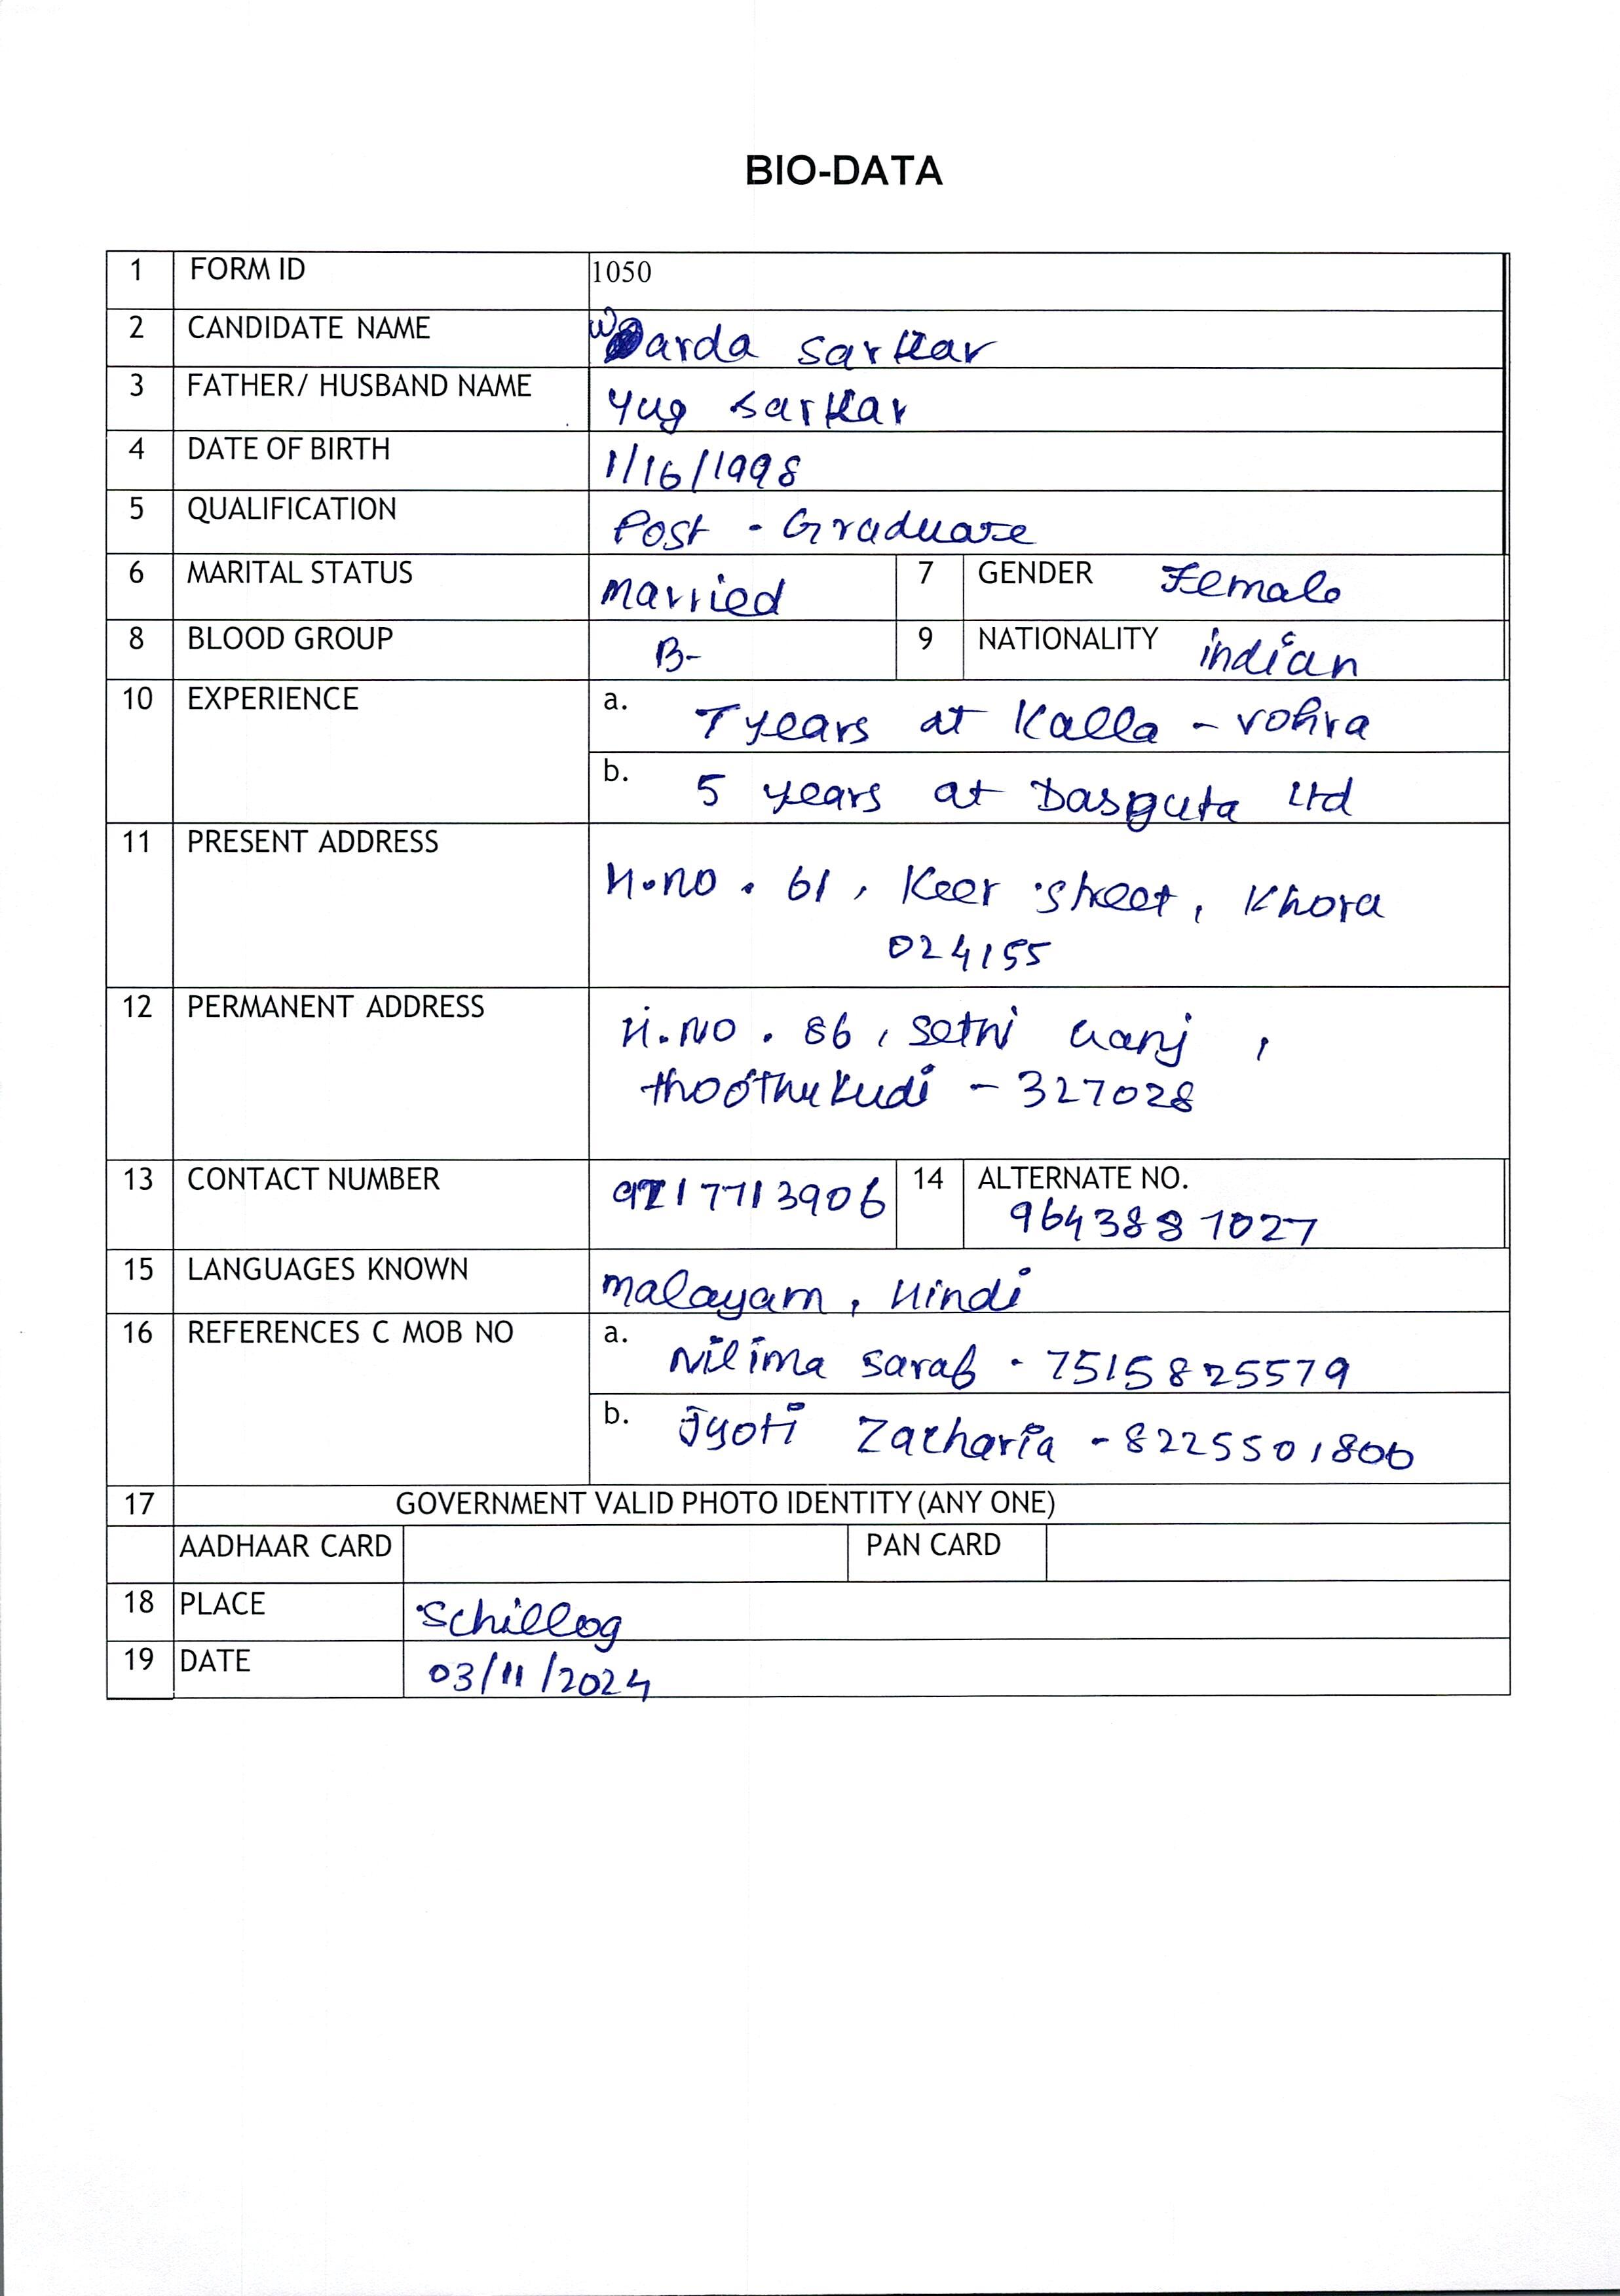 BIO-DATA
1 FORM ID 1050
2 CANDIDATE NAME Warda Sarkar
3 FATHER/ HUSBAND NAME Yug Sarkar
4 DATE OF BIRTH 1/16/1998
5 QUALIFICATION Post - Graduate
6 MARITAL STATUS Married 7 GENDER Female
8 BLOOD GROUP B- 9 NATIONALITY indian
10 EXPERIENCE a. 7 years at Kalla - Vohra
b. 5 years at Dasguta Ltd
11 PRESENT ADDRESS
H.no . 61, Keer street, Khora
024155
12 PERMANENT ADDRESS H.NO . 86, Sethi Ganj ,
thoothukudi - 327028
13 CONTACT NUMBER 9217713906 14 ALTERNATE NO.
9643887027
15 LANGUAGES KNOWN malayam, Hindi
16 REFERENCES C MOB NO a. Nilima Saraf - 7515825579
b. Jyoti Zacharia - 8225501806
17 GOVERNMENT VALID PHOTO IDENTITY (ANY ONE)
AADHAAR CARD PAN CARD
18 PLACE Schillog
19 DATE 03/11/2024